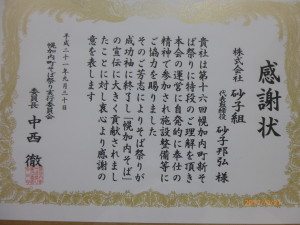 感謝状
株式会社 砂子組
代表取締役 砂子邦弘 様
貴社は第十六回幌加内町新そ
ば祭りに特段のご理解を頂き
本会の運営に自発的に奉仕の
精神で参加され施設整備等に
ご協力を賜りました
そのご芳志によりそば祭りが
成功裡に終了し「幌加内そば」
の宣伝に大きく貢献されまし
たことに対し衷心より感謝の
意を表します
平成二十一年九月三十日
幌加内町そば祭り実行委員会
委員長 中西 徹